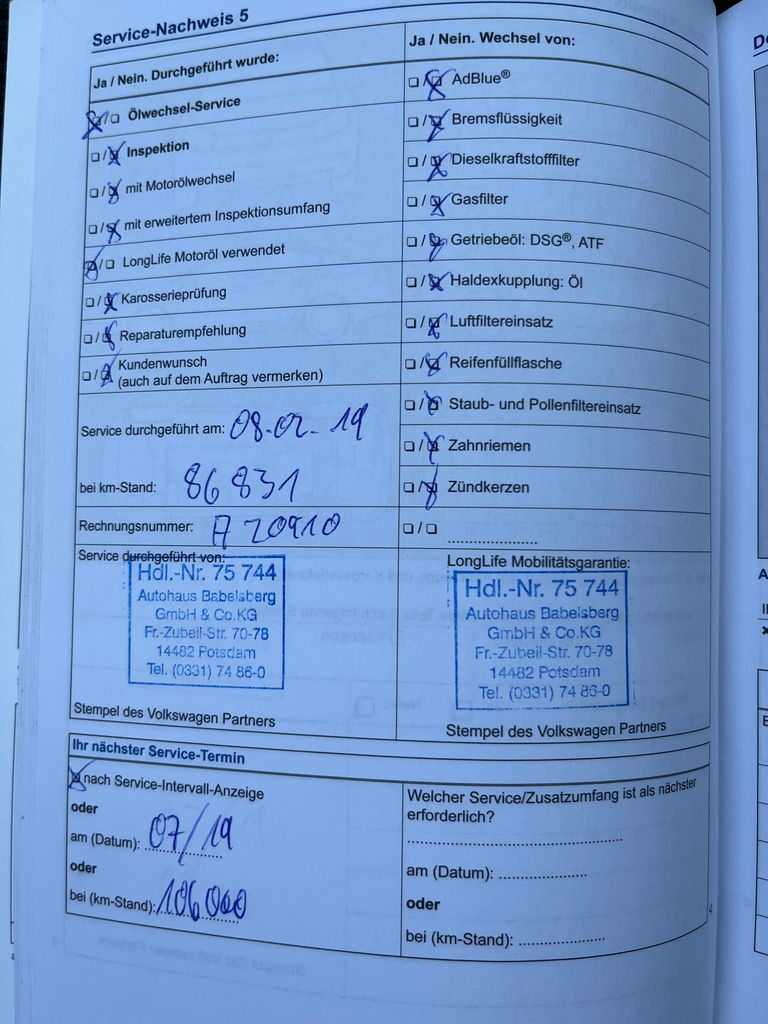 Service-Nachweis 5
Ja / Nein. Durchgeführt wurde:
Ölwechsel-Service
Inspektion
mit Motorölwechsel
mit erweitertem Inspektionsumfang
LongLife Motoröl verwendet
Karosserieprüfung
Reparaturempfehlung
Kundenwunsch
(auch auf dem Auftrag vermerken)
Service durchgeführt am: 08.02.19
bei km-Stand: 86831
Rechnungsnummer: A 20910
Service durchgeführt von:
Hdl.-Nr. 75 744
Autohaus Babelsberg
GmbH & Co.KG
Fr.-Zubeil-Str. 70-78
14482 Potsdam
Tel. (0331) 74 86-0
Stempel des Volkswagen Partners
Ja / Nein. Wechsel von:
AdBlue®
Bremsflüssigkeit
Dieselkraftstofffilter
Gasfilter
Getriebeöl: DSG®, ATF
Haldexkupplung: Öl
Luftfiltereinsatz
Reifenfüllflasche
Staub- und Pollenfiltereinsatz
Zahnriemen
Zündkerzen
LongLife Mobilitätsgarantie:
Hdl.-Nr. 75 744
Autohaus Babelsberg
GmbH & Co.KG
Fr.-Zubeil-Str. 70-78
14482 Potsdam
Tel. (0331) 74 86-0
Stempel des Volkswagen Partners
Ihr nächster Service-Termin
nach Service-Intervall-Anzeige
oder
am (Datum): 07/19
oder
bei (km-Stand): 106000
Welcher Service/Zusatzumfang ist als nächster
erforderlich?
am (Datum):
oder
bei (km-Stand):